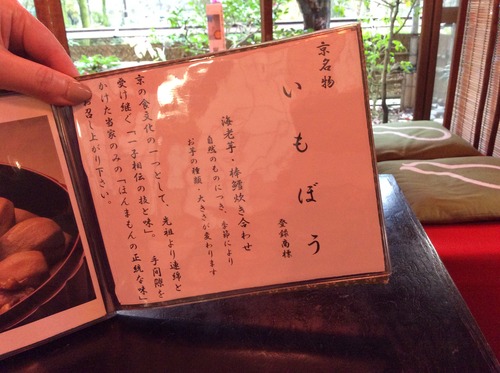 京名物
いもぼう
登録商標
海老芋・棒鱈炊き合わせ
自然のものにつき、季節により
お芋の種類・大きさが変わります
京の食文化の一つとして、光祖より連綿と
受け継ぐ「一子相伝の技と味」。手間隙を
かけた当家のみの「ほんまもんの正統な味」
お召し上がり下さい。